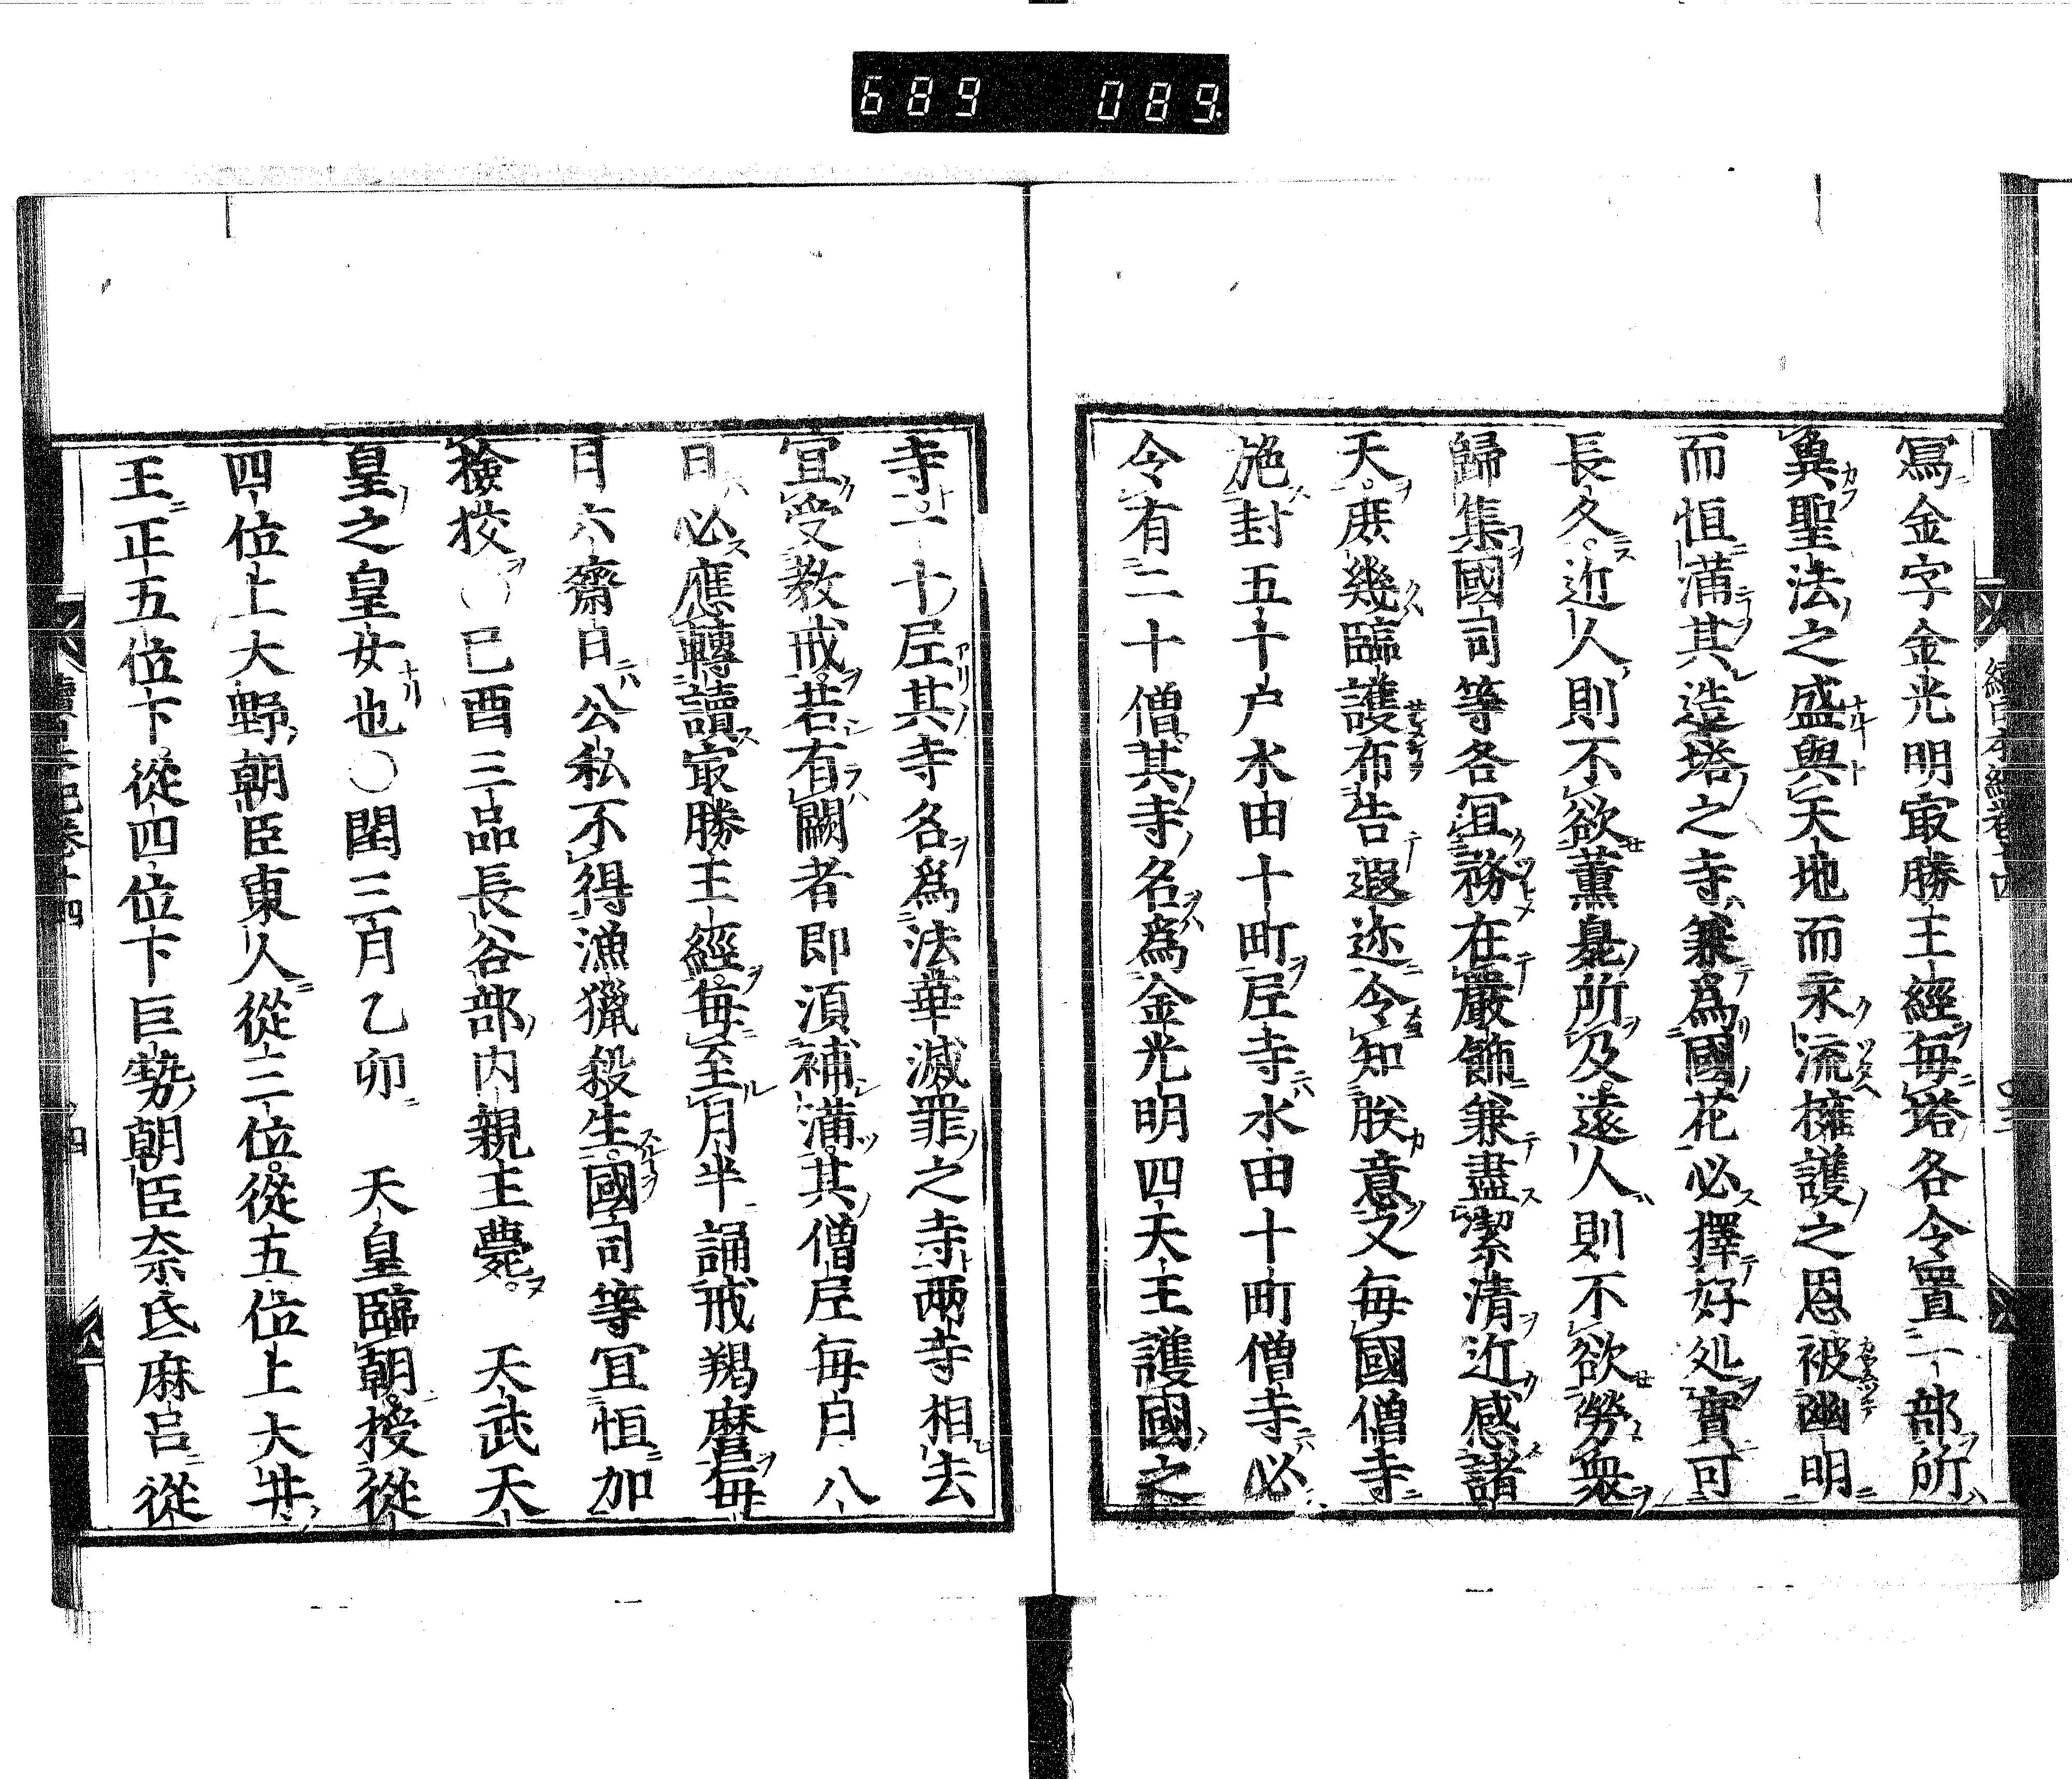 689 089
寫金字金光明㝡勝王經每塔各令置一部所
冀聖法之盛與天地而永流擁護之恩被幽明
而恒滿其造塔之寺兼爲國花必擇好処實可
長久近人則不欲薰臭所及遠人則不欲勞衆
歸集國司等各宜務在嚴飾兼盡潔清近感諸
天庶幾臨護布告遐迩令知朕意又每國僧寺
施封五十户水田十町尼寺水田十町僧寺必
令有二十僧其寺名爲金光明四天王護國之
寺一十尼其寺名爲法華滅罪之寺兩寺相去
宜受教戒若有闕者即須補滿其僧尼每月八
日必應轉讀㝡勝王經每至月半誦戒羯磨每
月六齋日公私不得漁獵殺生國司等宜恒加
檢挍○己酉三品長谷部内親王薨 天武天
皇之皇女也○閏三月乙卯 天皇臨朝授從
四位上大野朝臣東人從三位從五位上大井
王正五位下從四位下巨勢朝臣奈氐麻呂從